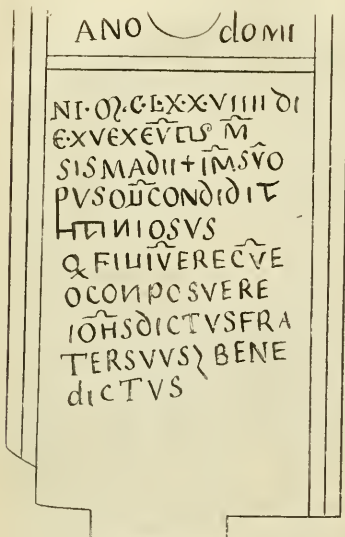 ANO domi
NI·M·C·L·X·X·VIIII DI
E·XVEXEVTIS M
SISMADII+IMSVO
PVS CONDIDIT
IOSVS
FILIIVERECVE
OCONPOSVERE
IOHSDICTVSFRA
TERSVVS BENE
dICTVS